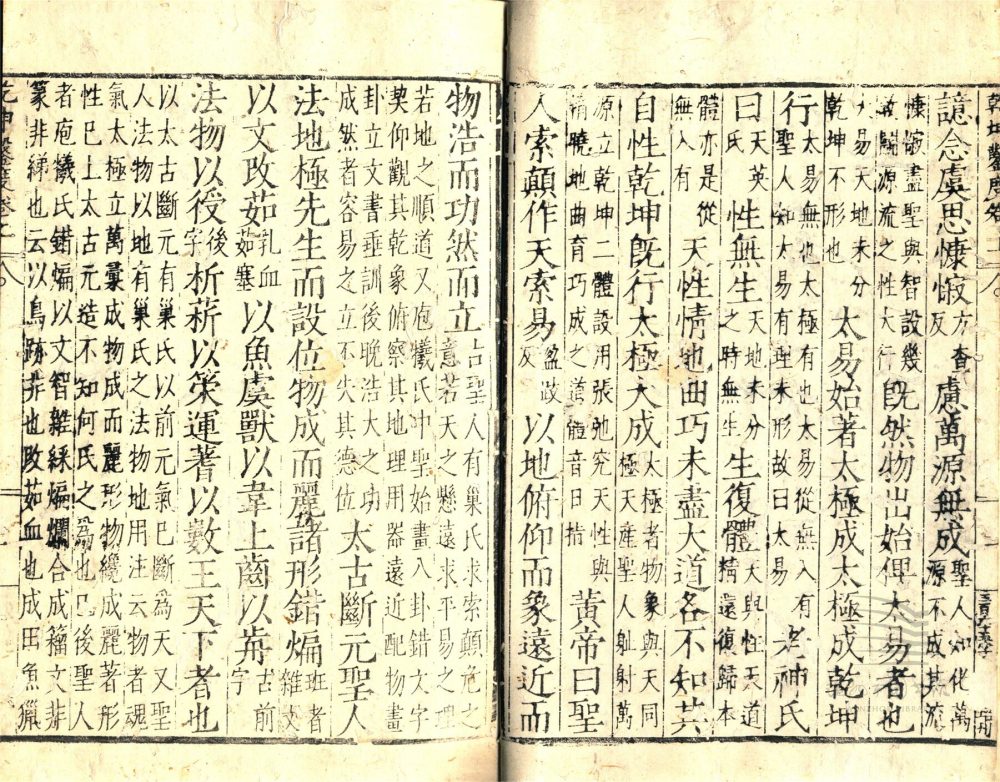 譩念虞思慷㥬方查反慮萬源無成聖人知化萬源不成其流
慷㥬盡聖與智設幾
歸源流之性大行旣然物出始俾太易者也
太易天地未分
乾坤不形也太易始著太極成太極成乾坤
行太易無也太極有也太易從無入有
聖人知太易有理未形故曰太易老神氏
曰天英氏性無生生天地未分之時無生生復體天與性天道精還復歸本
體亦是從
無入有天性情地曲巧未盡大道各不知其
自性乾坤旣行太極大成太極者物象與天同極天産聖人躲射萬
源立乾坤二體設用張弛究天性與
情曉地曲育巧成之道體音日措黃帝曰聖
人索顛作天索易盈歧反以地俯仰而象遠近而
物浩而功然而立古聖人有巢氏求索顛危之意若天之懸遠求平易之理
若地之順道又庖犧氏中聖始畫八卦錯文字
契仰觀其乾象俯察其地理用器遠近配物畫
卦立文書垂訓後晚浩大之功
成然者容易之立不失其德位太古斷元聖人
法地極先生而設位物成而麗諸形錯煸班者雜文
以文改茹乳血茹塞以魚虞獸以韋上齒以古前字
法物以授後字析薪以策運蓍以數王天下者也
以太古斷元有巢氏以前元氣已斷為天又聖
人法物以地有巢氏之法物地用注云物者魂
氣太極立萬彚成物成而麗形物纔成麗著形
性巳上太古元造不知何氏之為也巳後聖人
者庖犧氏錯煸以文智雜綵煸爛合成籀文非
篆非綈也云以鳥跡非也改茹血也成田魚獵